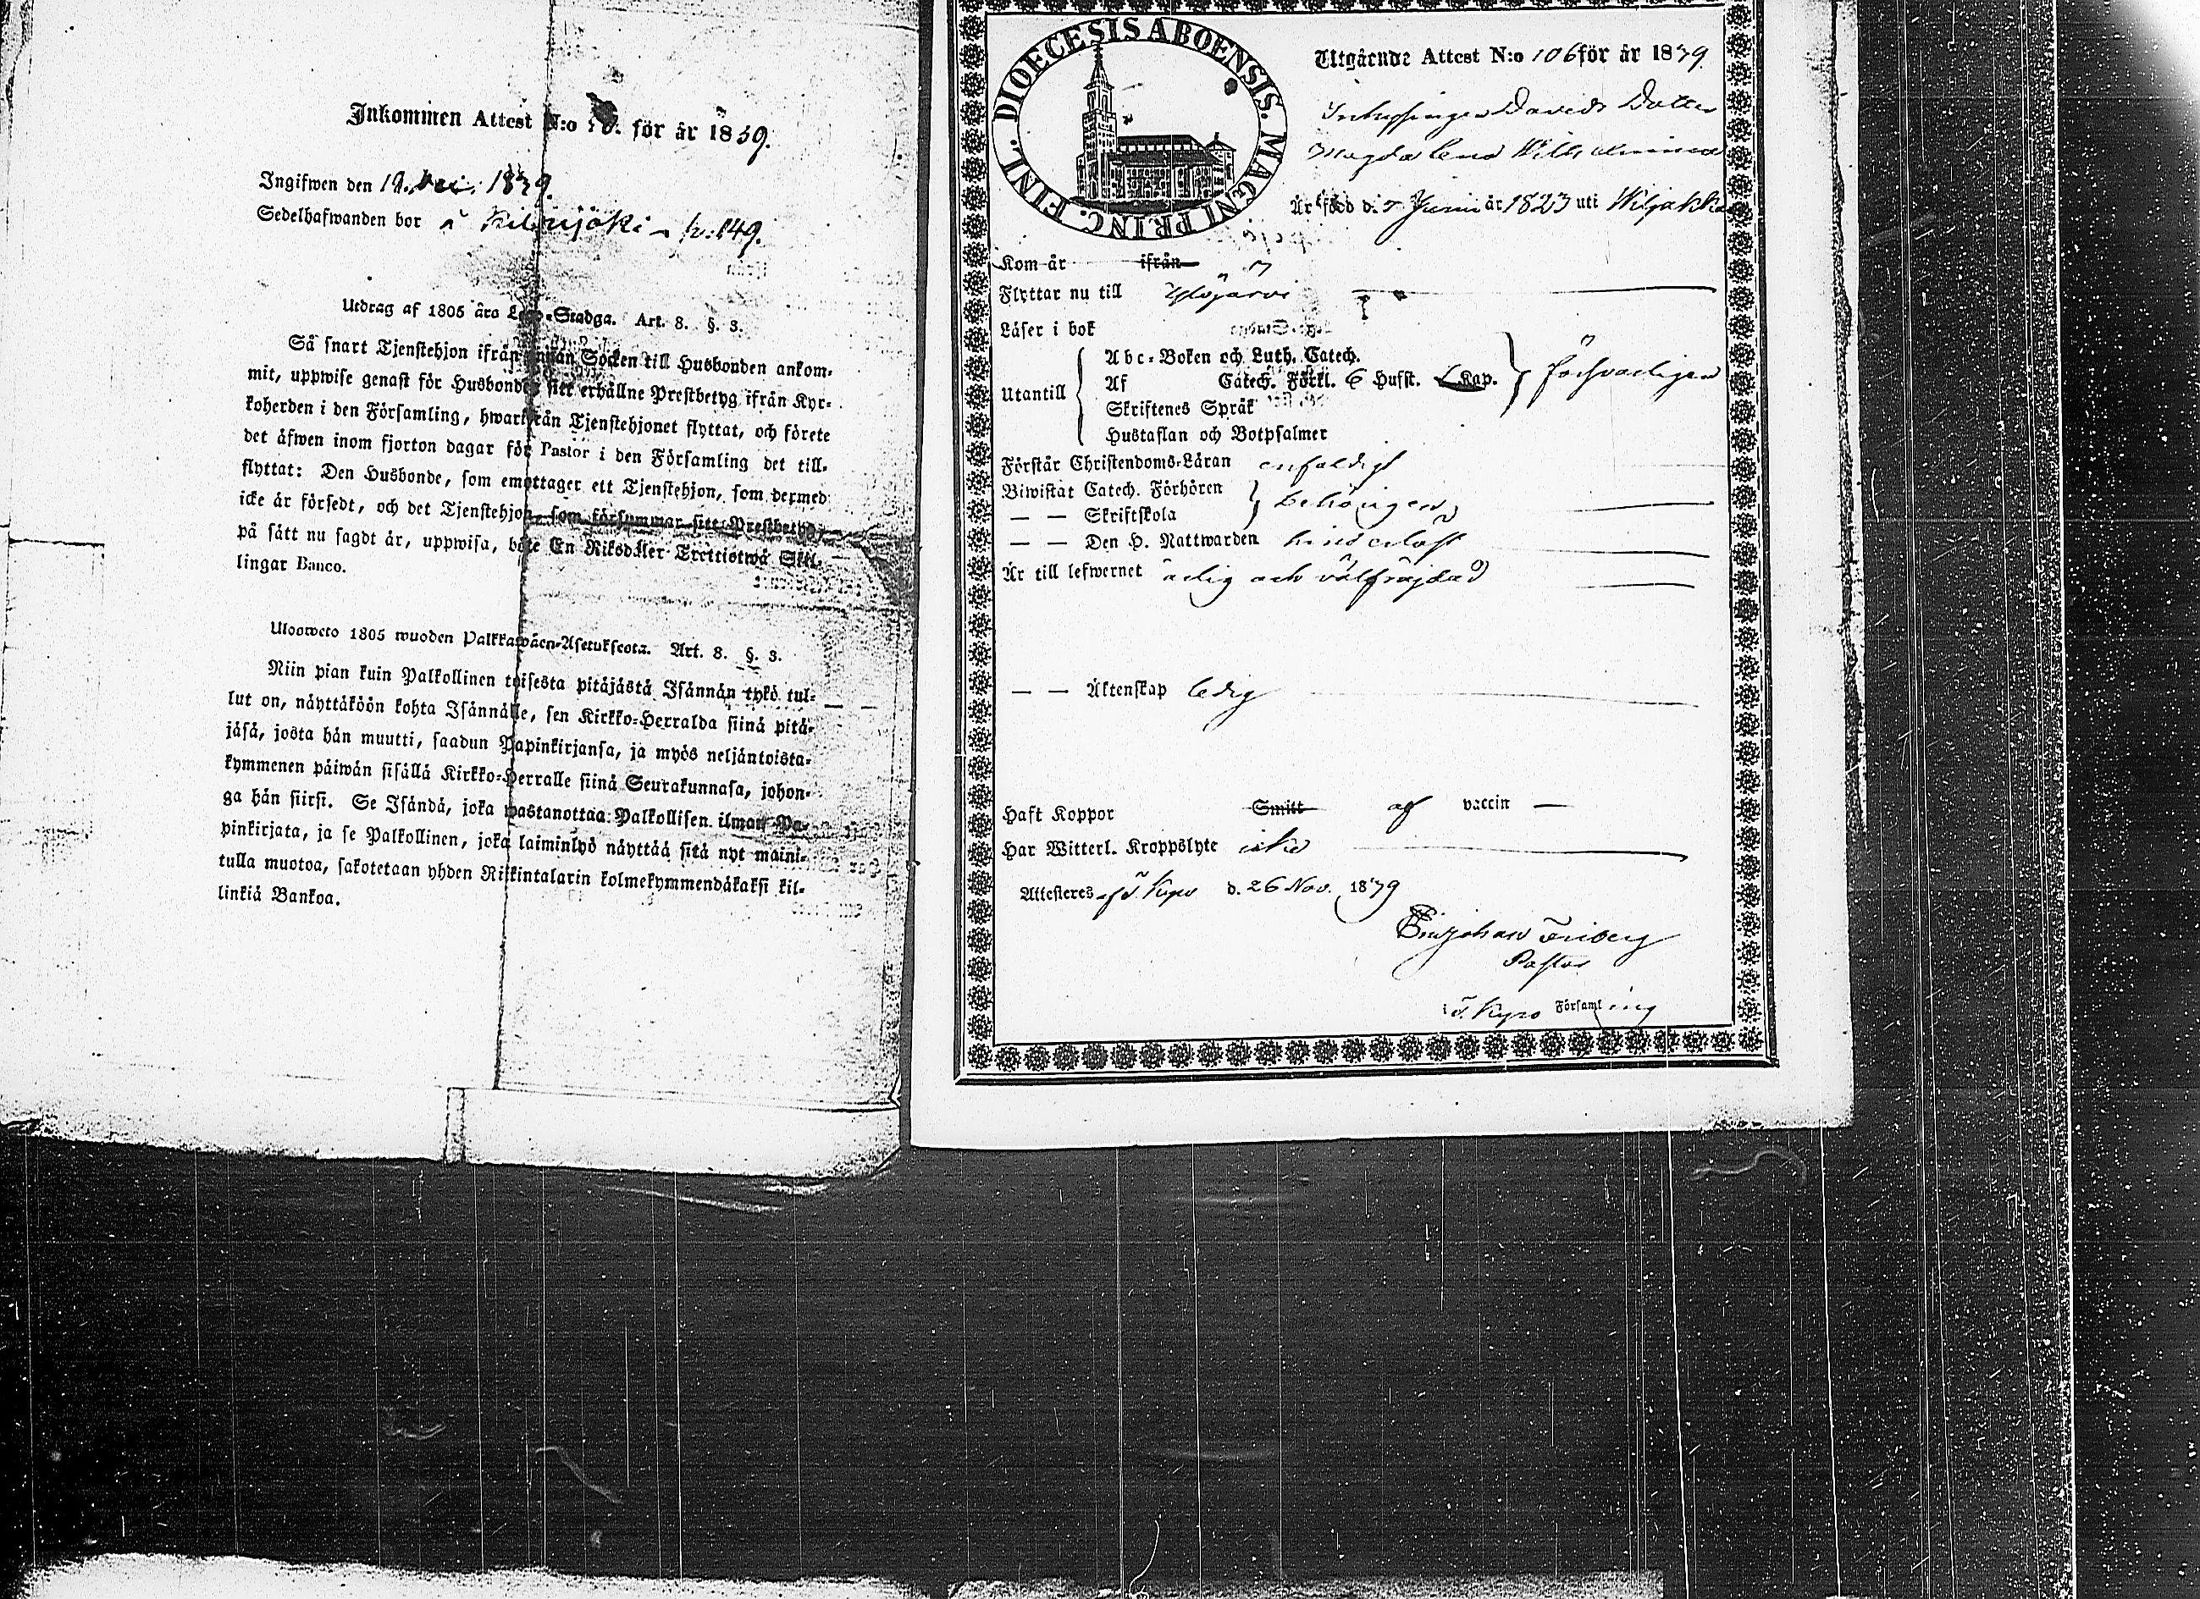 Inkommen Attest N:o för år 1839.
Ingifwen den 19. 1839.
Sedelhafwanden bor å Kilvijöki p: 149.
Utdrag af 1805 åra Lego-Stadga. Art. 8. §. 3.
Så snart Tjenstehjon ifrån annan Socken till Husbonden ankom-
mit, uppwise genast för Husbonden sitt erhållne Prestbetyg ifrån Kyr-
koherden i den Församling, hwarifrån Tjenstehjonet flyttat, och förete
det åfwen inom fjorton dagar för Pastor i den Församling det till-
flyttat: Den Husbonde, som emottager ett Tjenstehjon, som dermed
icke är försedt, och det Tjenstehjon, som försummar sitt Prestbetyg,
på sätt nu sagdt är, uppwisa, böte En Riksdaler Trettiotwå Skil-
lingar Banco.
Ulosweto 1805 wuoden Palkkawäen-Asetuksesta. Art. 8. §. 3.
Niin pian kuin Palkollinen toisesta pitäjästä Isännän tykö tul-
lut on, näyttäköön kohta Isännälle, sen Kirkko-Herralda siinä pitä-
jäsä, josta hän muutti, saadun Papinkirjansa, ja myös neljäntoista-
kymmenen päiwän sisällä Kirkko-Herralle siinä Seurakunnasa, johon-
ga hän siirsi. Se Isändä, joka wastanottaa Palkollisen ilman Pa-
pinkirjata, ja se Palkollinen, joka laiminlyö näyttää sitä nyt maini-
tulla muotoa, sakotetaan yhden Riikintalarin kolmekymmendäkaksi kil-
linkiä Bankoa.
DIOECESIS ABOENSIS. MAGNI PRINC. FINL.
Utgående Attest N:o 106 för år 1839.
Inhyssingen Davids Dotter
Magdalena Wilhelmina
Är född d. 5 Juni år 1823 uti Wiljakka
Kom år ifrån
Flyttar nu till Ylöjärvi
Läser i bok
Utantill
Abc-Boken och Luth. Catech.
Af Catech. Förkl. 6 Hufst. Kap. försvarligen
Skriftenes Språk
Hustaflan och Botpsalmer
Förstår Christendoms-Läran enfaldigt
Biwistat Catech. Förhören
— — Skriftskola behörigen
— — Den H. Nattwarden hinderlöst
Är till lefwernet ärlig och välfräjdad
— — Äktenskap ledig
Haft Koppor Smitt af vaccin —
Har Witterl. Kroppslyte icke
Attesteres af T. Kyro d. 26 Nov. 1839
Johan Friberg
Pastor
i T. Kyro Församling